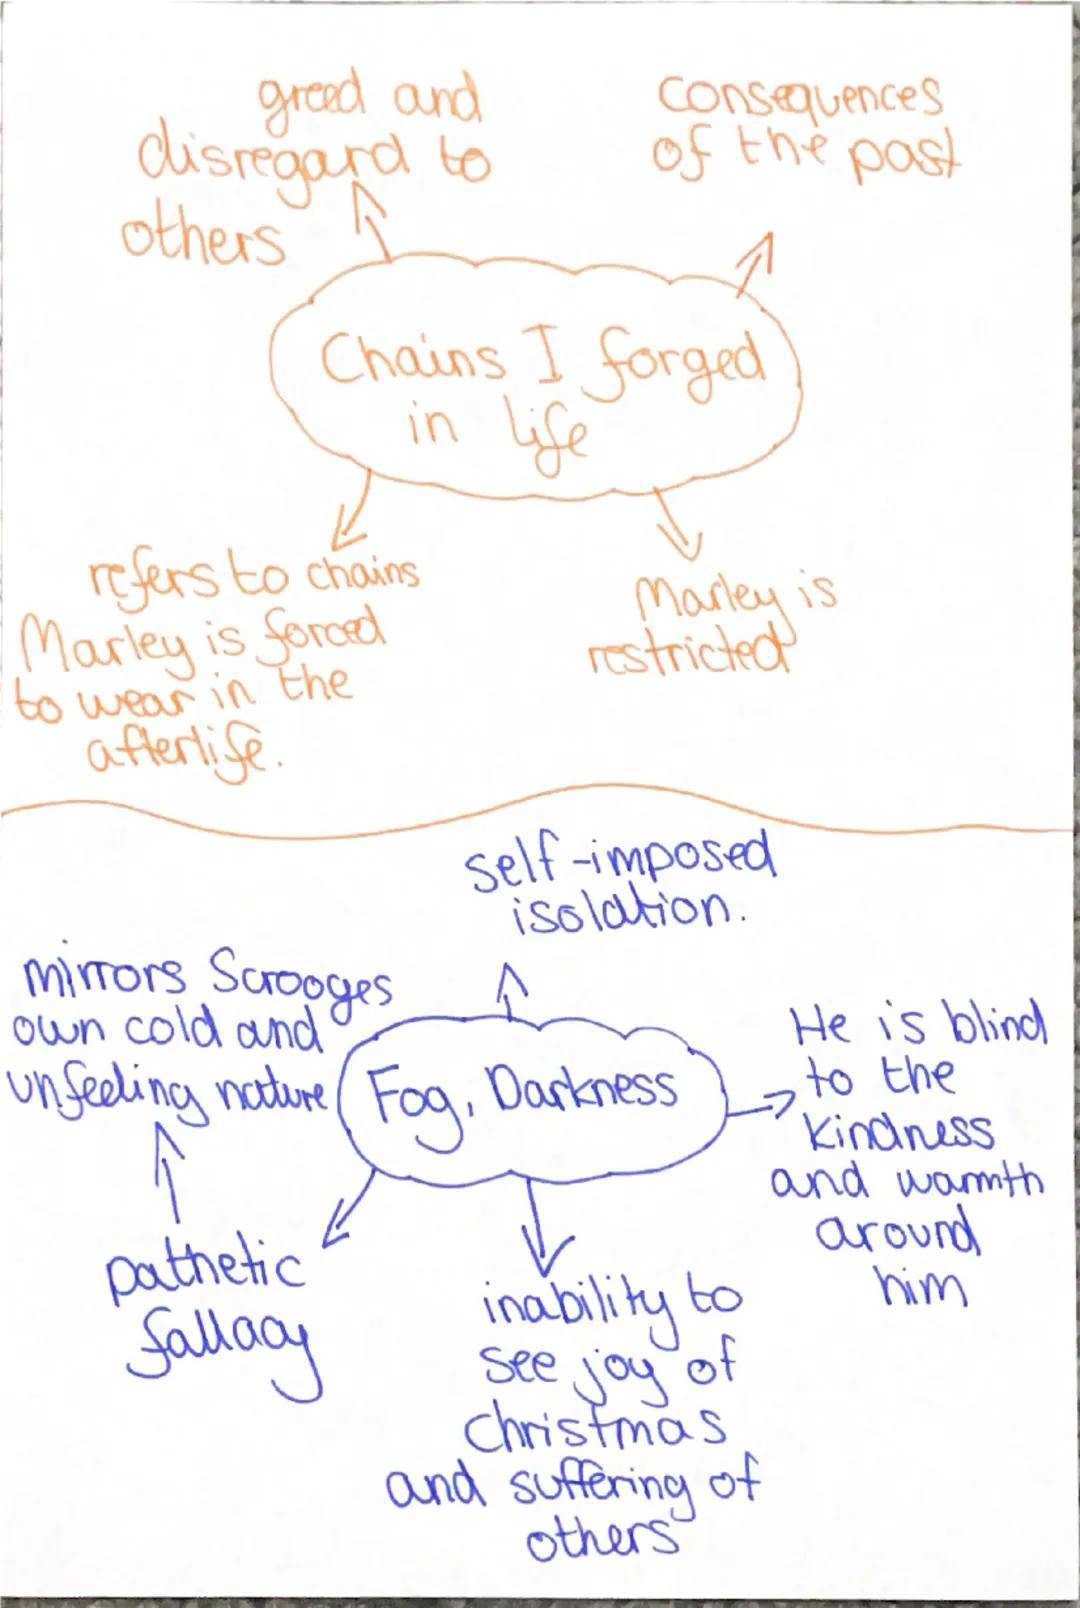 greed and
disregard to
others
consequences
of the past
Chains I forged
in life
refers to chains
Marley is forced
to wear in the
afterlife.
Marley is
restricted
self-imposed
isolation.
mirrors Scrooges
own cold and
unfeeling nature
Fog, Darkness
He is blind
to the
kindness
and warmth
around
him
pathetic
fallacy
inability to
see joy of
Christmas
and suffering of
others